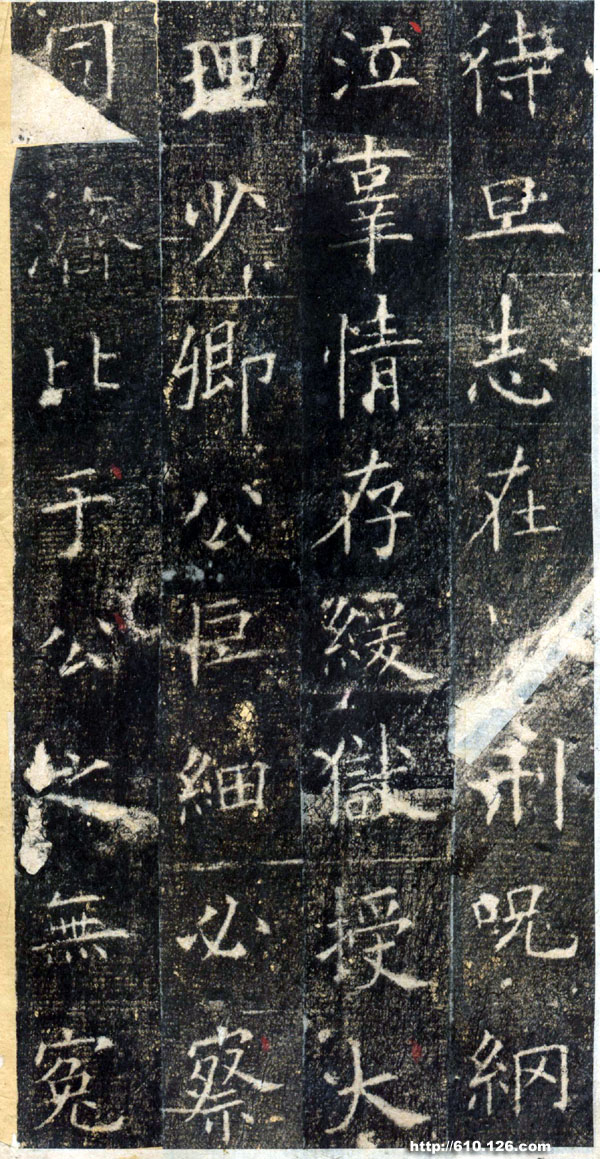 待旦志在刑呪網
泣辜情存緩獄授大
理少卿公巨細必察
同比于公之無冤
http://610.126.com